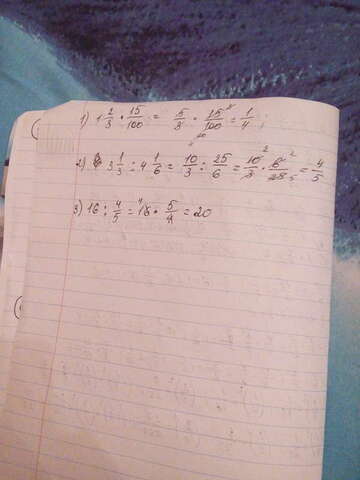 1) 1 2/3 · 15/100 = 5/3 · 15/100 = 1/4 ;
2) 3 1/3 : 4 1/6 = 10/3 : 25/6 = 10/3 · 6/25 = 4/5
3) 16 : 4/5 = 16 · 5/4 = 20